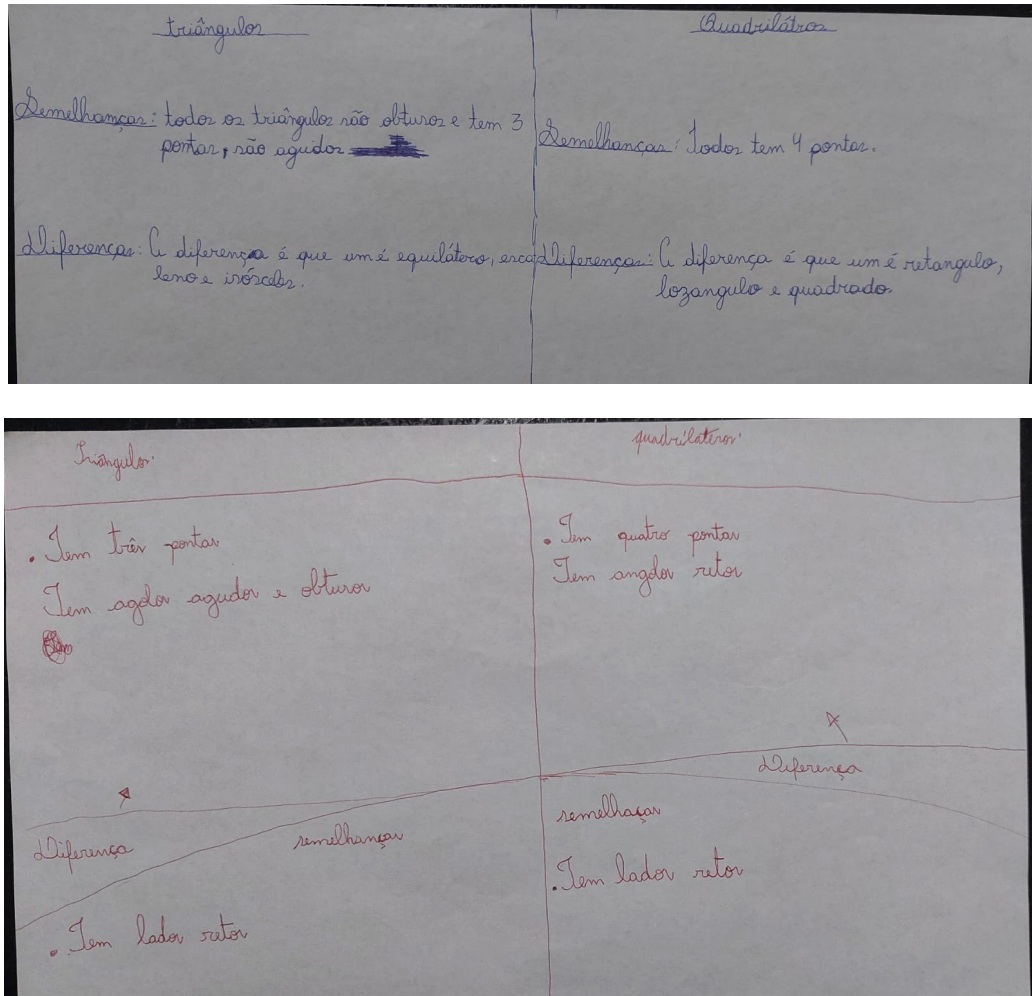 triângulos
Semelhanças: todos os triângulos são obtusos e tem 3
pontas, são agudos
Diferenças: A diferença é que um é equilátero, esca
leno e isósceles.
Quadrilátros
Semelhanças: Todos tem 4 pontas.
Diferenças: A diferença é que um é retangulo,
lozangulo e quadrado.
Triângulos.
• Tem três pontas
Tem agolos agudos e obtusos
Diferença
semelhanças
• Tem lados retos
quadriláteros.
• Tem quatro pontas
Tem angolos retos
Diferença
semelhaças
• Tem lados retos